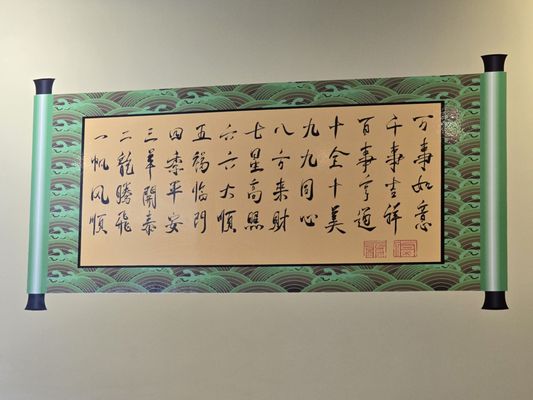 一帆风順
二龍騰飛
三羊開泰
四季平安
五福临门
六六大順
七星高照
八方来财
九九同心
十全十美
百事亨通
千事吉祥
万事如意